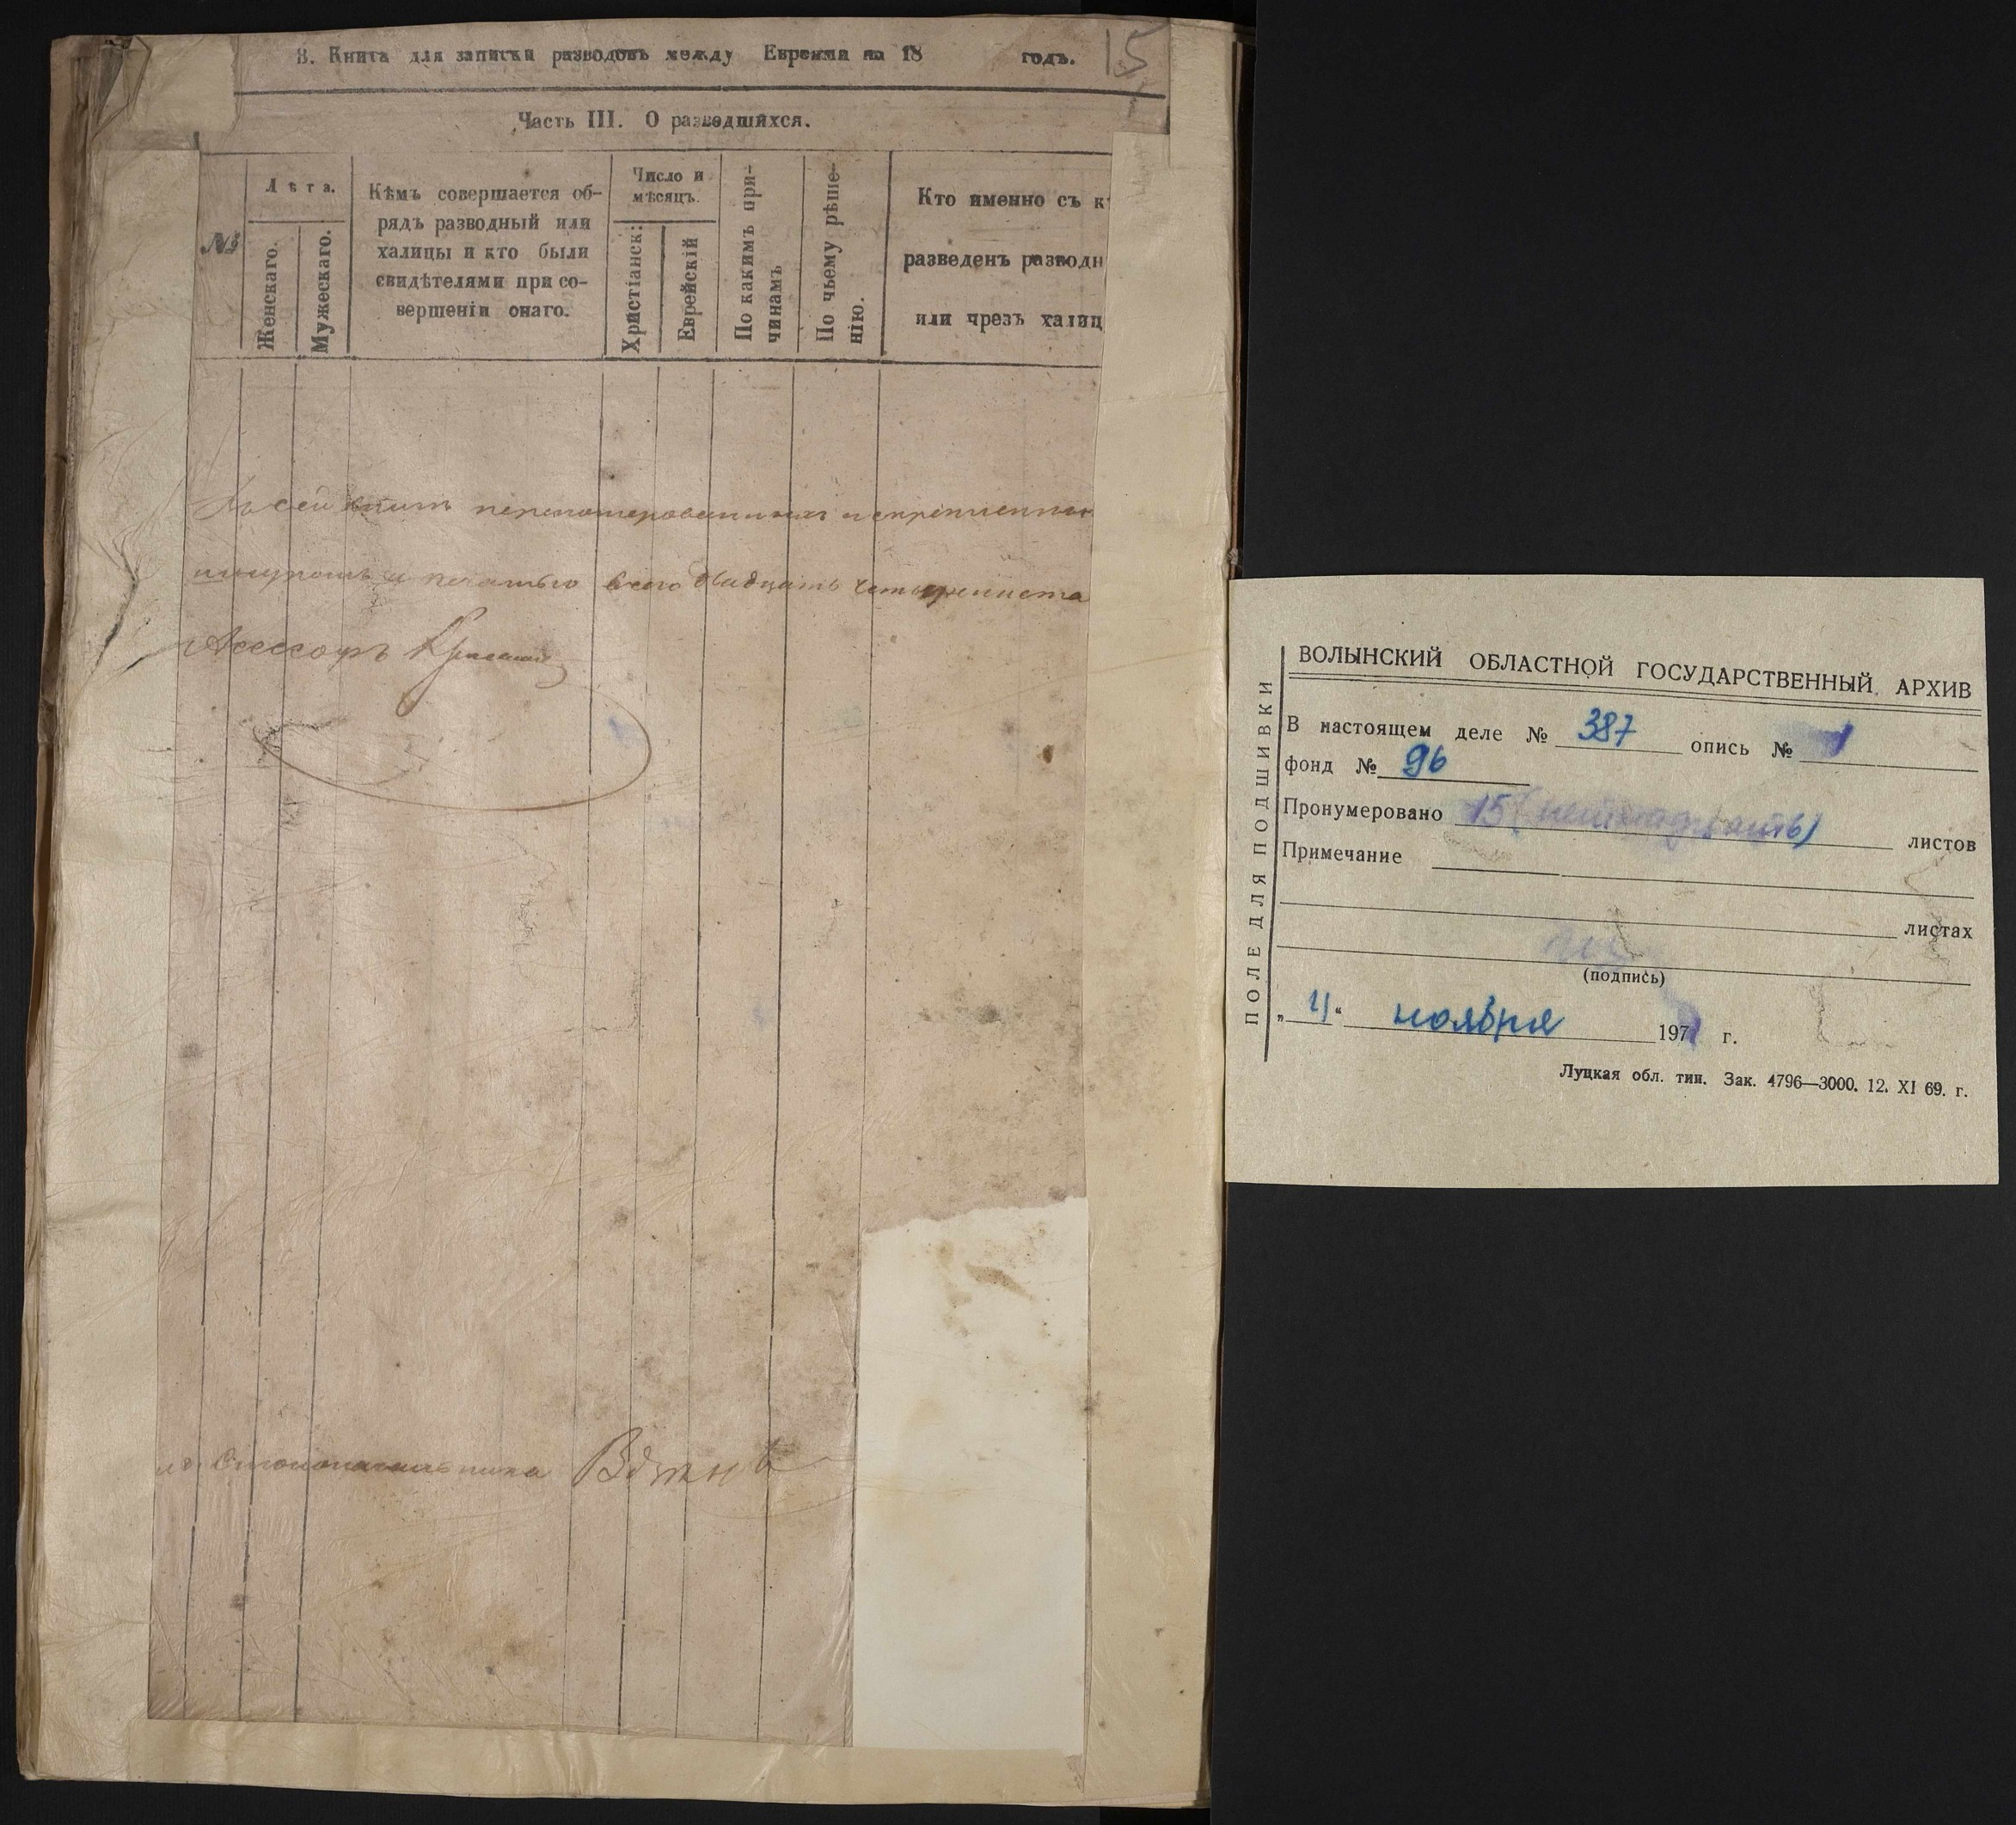 В. Книга для записки разводовъ между Евреями на 18 годъ.
15
Часть III. О разведшихся.
№
Лѣта.
Женскаго.
Мужескаго.
Кѣмъ совершается об-
рядъ разводный или
халицы и кто были
свидѣтелями при со-
вершеніи онаго.
Число и
мѣсяцъ.
Христіанск:
Еврейскій
По какимъ при-
чинамъ
По чьему рѣше-
нію.
Кто именно съ к
разведенъ разводн
или чрезъ халиц
Въ сей книгѣ перенумерованныхъ и скрѣпленных
шнуромъ и печатью всего двадцать четыре листа
Асессоръ
Столоначальника
ВОЛЫНСКИЙ ОБЛАСТНОЙ ГОСУДАРСТВЕННЫЙ АРХИВ
ПОЛЕ ДЛЯ ПОДШИВКИ
В настоящем деле № 387 опись № 1
фонд № 96
Пронумеровано 15 (пятнадцать) листов
Примечание
листах
(подпись)
„ 4 “ ноября 1971 г.
Луцкая обл. тип. Зак. 4796—3000. 12. XI 69. г.